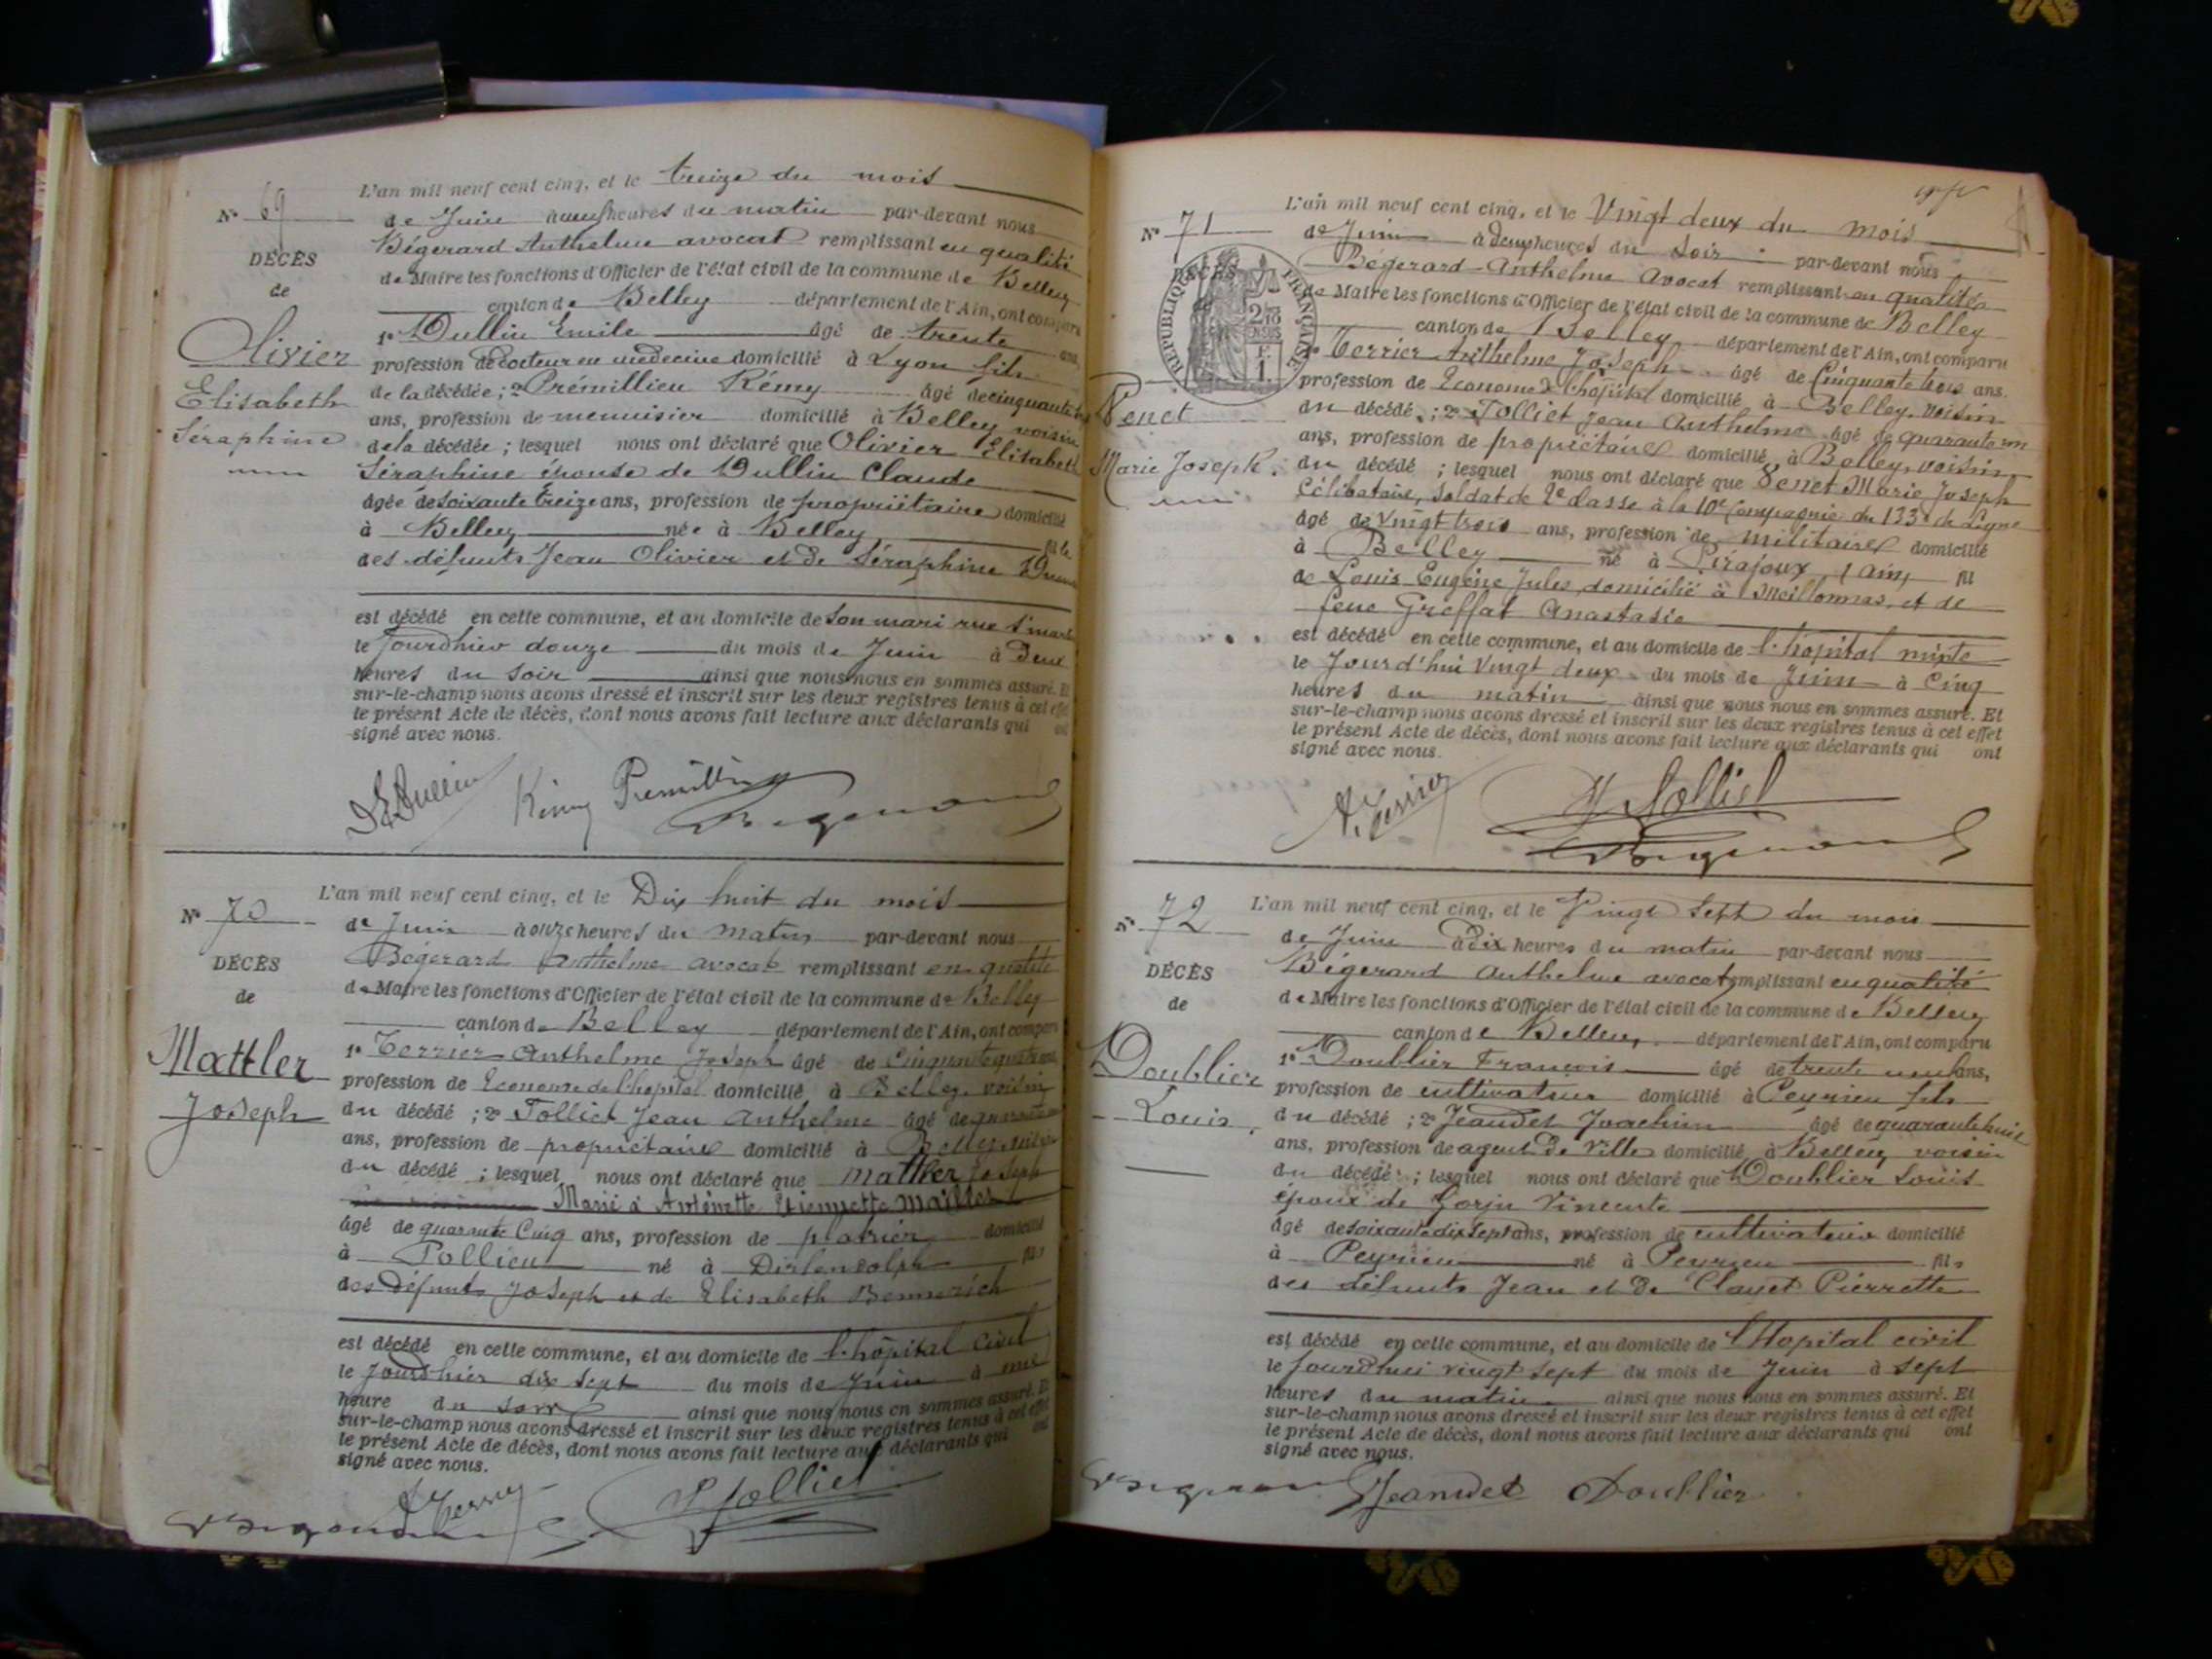 L'an mil neuf cent cinq, et le treize du mois
N° 69
de Juin à neuf heures du matin par-devant nous
Bégerard Anthelme avocat remplissant en qualité
DÉCÈS
de Maire les fonctions d'Officier de l'état civil de la commune de Belley
de
canton de Belley département de l'Ain, ont comparu
1° Dullin Emile âgé de trente ans,
Olivier
profession de docteur en medecine domicilié à Lyon fils
Elisabeth
de la décédée ; 2° Prémillieu Rémy âgé de cinquante
ans, profession de menuisier domicilié à Belley voisin
Séraphine
de la décédée ; lesquel nous ont déclaré que Olivier Elisabeth
Séraphine épouse de Dullin Claude
âgée de soixante treize ans, profession de propriétaire domicilié
à Belley née à Belley fille
des défunts Jean Olivier et de Séraphine
est décédé en cette commune, et au domicile de son mari rue St
le jourdhier douze du mois de Juin à Deux
heures du soir ainsi que nous nous en sommes assuré. Et
sur-le-champ nous avons dressé et inscrit sur les deux registres tenus à cet effet
le présent Acte de décès, dont nous avons fait lecture aux déclarants qui ont
signé avec nous.
Dullin Rémy Prémillieu
L'an mil neuf cent cinq, et le Dix huit du mois
N° 70
de Juin à onze heures du matin par-devant nous
Bégerard Anthelme avocat remplissant en qualité
DÉCÈS
de Maire les fonctions d'Officier de l'état civil de la commune de Belley
de
canton de Belley département de l'Ain, ont comparu
1° Terrier Anthelme Joseph âgé de Cinquante quatre ans,
Mattler
profession de Econome de l'hopital domicilié à Belley, voisin
Joseph
du décédé ; 2° Tolliet Jean Anthelme âgé de quarante
ans, profession de propriétaire domicilié à Belley voisin
du décédé ; lesquel nous ont déclaré que Mattler Joseph
Marié à Antoinette Etiennette
âgé de quarante Cinq ans, profession de platrier domicilié
à Pollieu né à fils
des Défunts Joseph et de Elisabeth
est décédé en cette commune, et au domicile de l'hôpital Civil
le Jourd'hier dix sept du mois de Juin à une
heure du soir ainsi que nous nous en sommes assuré. Et
sur-le-champ nous avons dressé et inscrit sur les deux registres tenus à cet effet
le présent Acte de décès, dont nous avons fait lecture aux déclarants qui ont
signé avec nous.
A. Terrier Tolliet
L'an mil neuf cent cinq, et le Vingt deux du mois
N° 71
de Juin à deux heures du soir par-devant nous
Bégerard Anthelme Avocat remplissant en qualité
DÉCÈS
RÉPUBLIQUE FRANÇAISE
de Maire les fonctions d'Officier de l'état civil de la commune de Belley
canton de Belley département de l'Ain, ont comparu
1° Terrier Anthelme Joseph âgé de Cinquante trois ans,
profession de Econome de l'hopital domicilié à Belley, voisin
Venet
du décédé ; 2° Tolliet Jean Anthelme âgé de quarante un
ans, profession de propriétaire domicilié à Belley, voisin
Marie Joseph
du décédé ; lesquel nous ont déclaré que Venet Marie Joseph
Célibataire, Soldat de 2e classe à la 10e Compagnie du 133e de Ligne
âgé de Vingt trois ans, profession de militaire domicilié
à Belley né à Pirajoux, (Ain) fil
de Louis Eugène Jules, domicilié à Meillonnas, et de
feue Greffat Anastasie
est décédé en cette commune, et au domicile de l'hopital mixte
le Jourd'hui Vingt deux du mois de Juin à Cinq
heures du matin ainsi que nous nous en sommes assuré. Et
sur-le-champ nous avons dressé et inscrit sur les deux registres tenus à cet effet
le présent Acte de décès, dont nous avons fait lecture aux déclarants qui ont
signé avec nous.
A. Terrier Tolliet
L'an mil neuf cent cinq, et le Vingt Sept du mois
N° 72
de Juin à dix heures du matin par-devant nous
Bégerard Anthelme avocat remplissant en qualité
DÉCÈS
de Maire les fonctions d'Officier de l'état civil de la commune de Belley
de
canton de Belley, département de l'Ain, ont comparu
Doublier
1° Doublier Francois âgé de trente neuf ans,
profession de cultivateur domicilié à Peyrieu fils
Louis
du décédé ; 2° Jeandet Joachim âgé de quarante huit
ans, profession de agent de ville domicilié à Belley voisin
du décédé ; lesquel nous ont déclaré que Doublier Louis
époux de Gorju Vincente
âgé de soixante dix sept ans, profession de cultivateur domicilié
à Peyrieu né à Peyrieu fils
des défunts Jean et De Clavet Pierrette
est décédé en cette commune, et au domicile de l'Hopital civil
le jourd'hui vingt sept du mois de Juin à sept
heures du matin ainsi que nous nous en sommes assuré. Et
sur-le-champ nous avons dressé et inscrit sur les deux registres tenus à cet effet
le présent Acte de décès, dont nous avons fait lecture aux déclarants qui ont
signé avec nous.
Jeandet Doublier